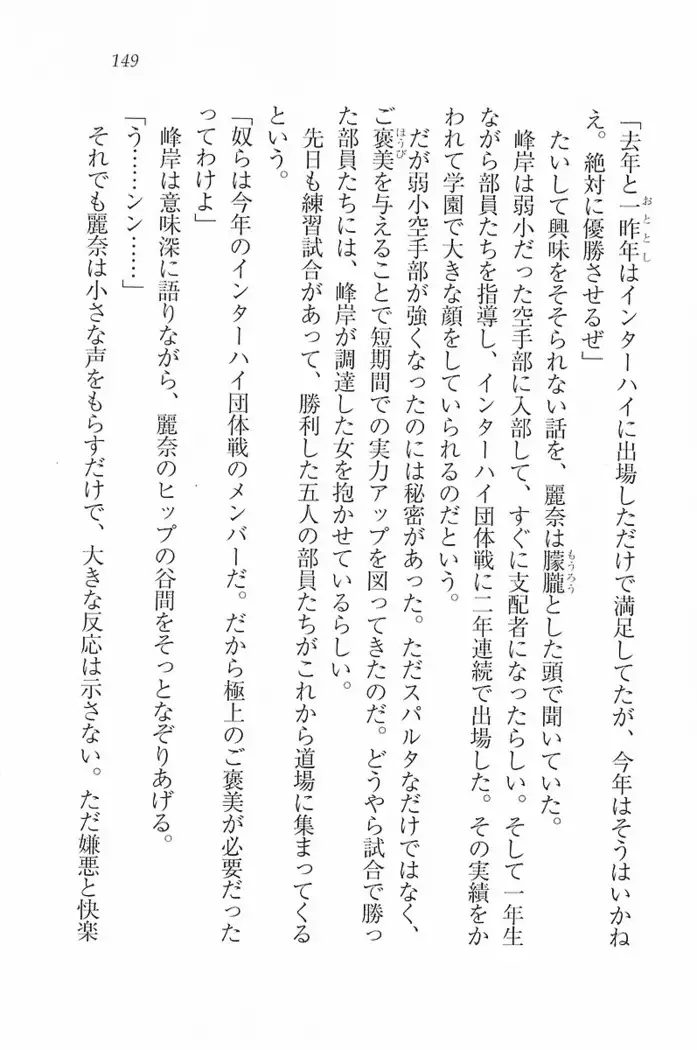 149
「去年と一昨年はインターハイに出場しただけで満足してたが、今年はそうはいかね
え。絶対に優勝させるぜ」
たいして興味をそそられない話を、麗奈は朦朧とした頭で聞いていた。
峰岸は弱小だった空手部に入部して、すぐに支配者になったらしい。そして一年生
ながら部員たちを指導し、インターハイ団体戦に二年連続で出場した。その実績をか
われて学園で大きな顔をしていられるのだという。
だが弱小空手部が強くなったのには秘密があった。ただスパルタなだけではなく、
ご褒美を与えることで短期間での実力アップを図ってきたのだ。どうやら試合で勝っ
た部員たちには、峰岸が調達した女を抱かせているらしい。
先日も練習試合があって、勝利した五人の部員たちがこれから道場に集まってくる
という。
「奴らは今年のインターハイ団体戦のメンバーだ。だから極上のご褒美が必要だった
ってわけよ」
峰岸は意味深に語りながら、麗奈のヒップの谷間をそっとなぞりあげる。
「う……ンン……」
それでも麗奈は小さな声をもらすだけで、大きな反応は示さない。ただ嫌悪と快楽